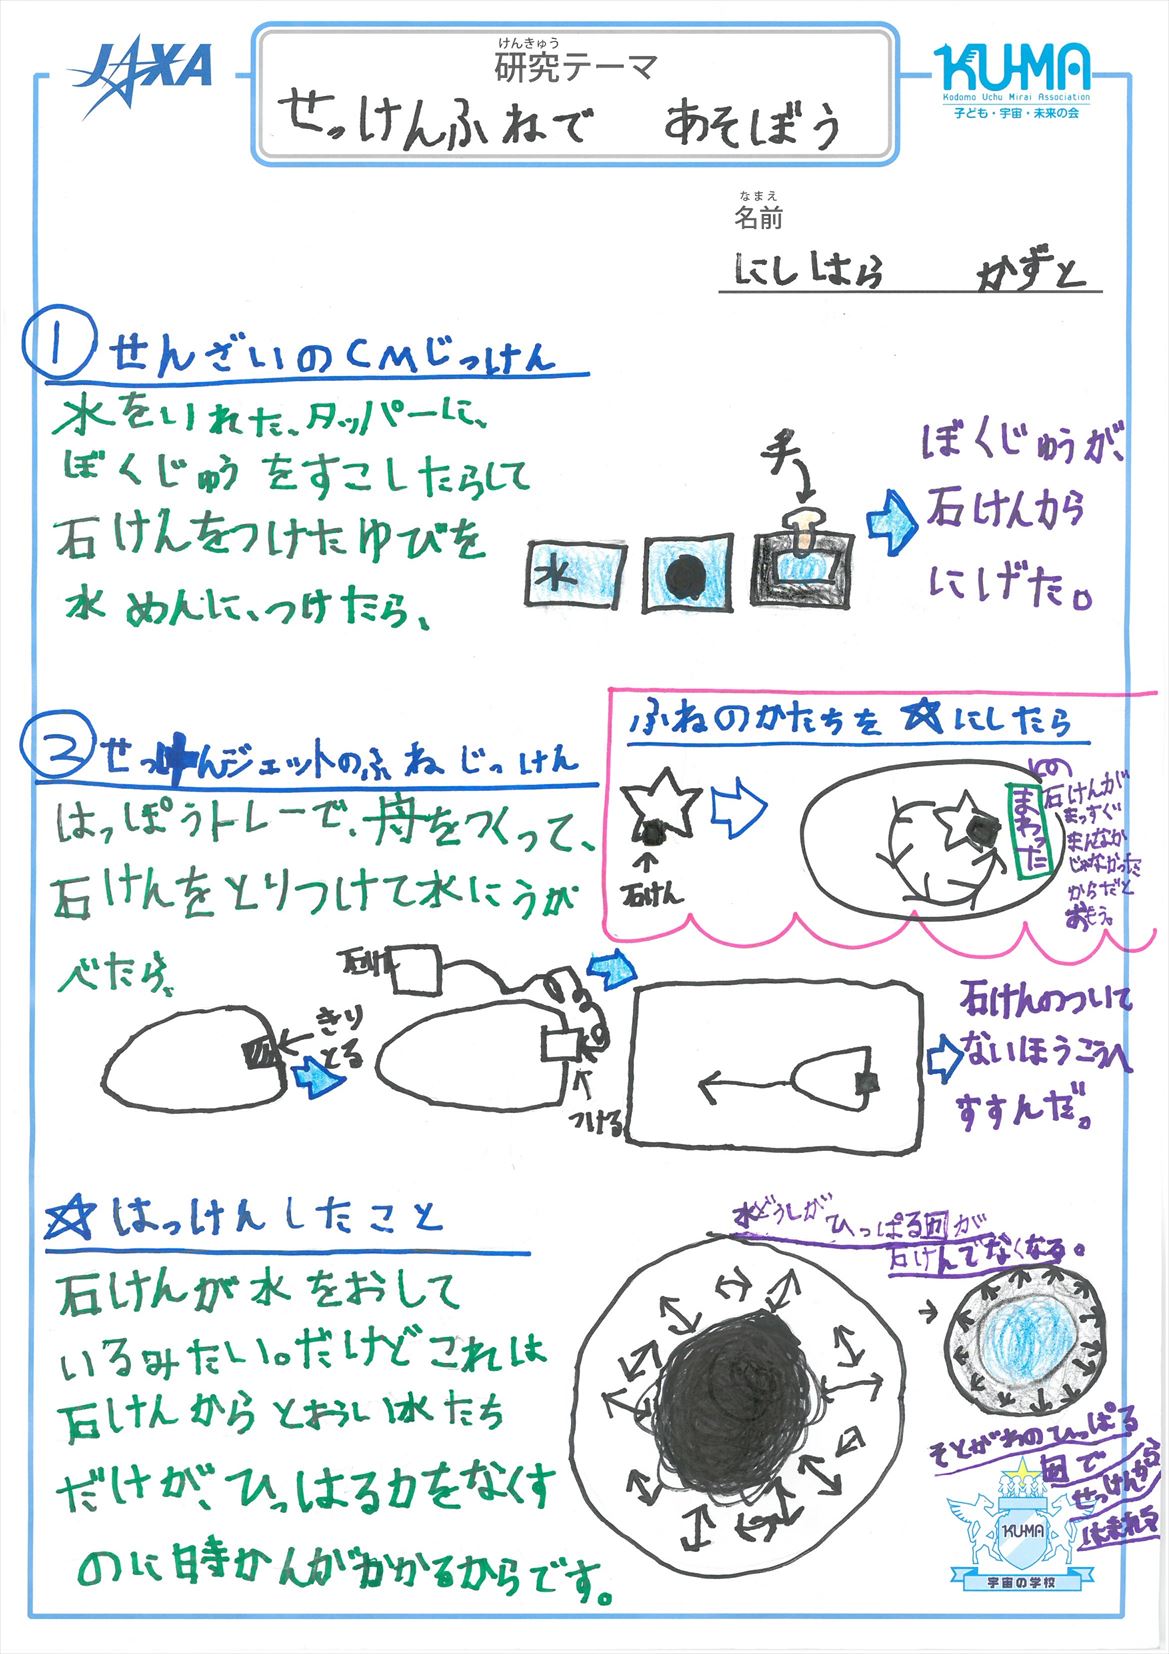 JAXA
けんきゅう
研究テーマ
せっけんふねで　あそぼう
KU-MA
Kodomo Uchu Mirai Association
子ども・宇宙・未来の会
なまえ
名前
にしはら　かずと
① せんざいのCMじっけん
水をいれた、タッパーに、
ぼくじゅうをすこしたらして
石けんをつけたゆびを
水めんに、つけたら、
水
手
ぼくじゅうが、
石けんから
にげた。
② せっけんジェットのふねじっけん
はっぽうトレーで、舟をつくって、
石けんをとりつけて水にうか
べたら、
ふねのかたちを☆にしたら
石けん
まわった
石けんが
まっすぐ
まんなか
じゃなかった
からだと
おもう。
きり
とる
石けん
つける
石けんのついて
ないほうこうへ
すすんだ。
☆はっけんしたこと
石けんが水をおして
いるみたい。だけどこれは
石けんからとおうい水たち
だけが、ひっはる力をなくす
のに時かんがかかるからです。
水どうしが
ひっぱる力が
石けんでなくなる。
そとがわのひっぱる
力で
せっけんから
はなれる
KU-MA
宇宙の学校